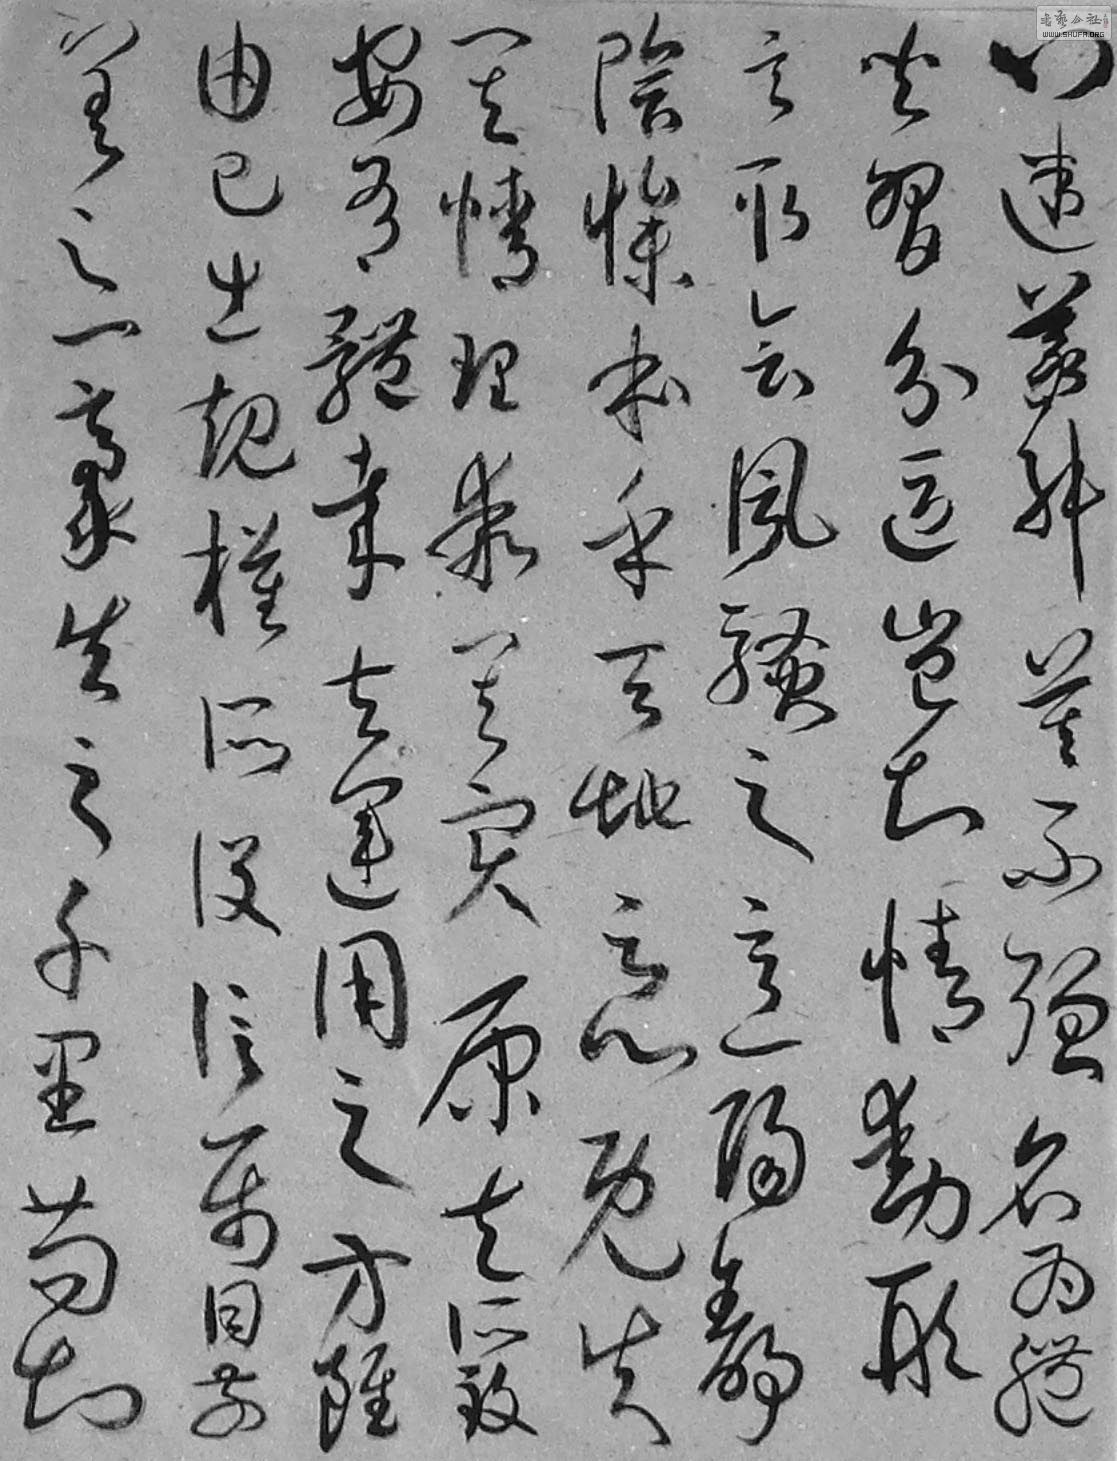 心迷議舛莫不強名為體
共習分區豈知情動形
言取會風騷之意陽舒
陰慘本乎天地之心既失
其情理乖其實原夫所致
安有體哉夫運用之方雖
由己出規模所設信屬目前
差之一豪失之千里苟知
書藝公社
WWW.SHUFA.ORG